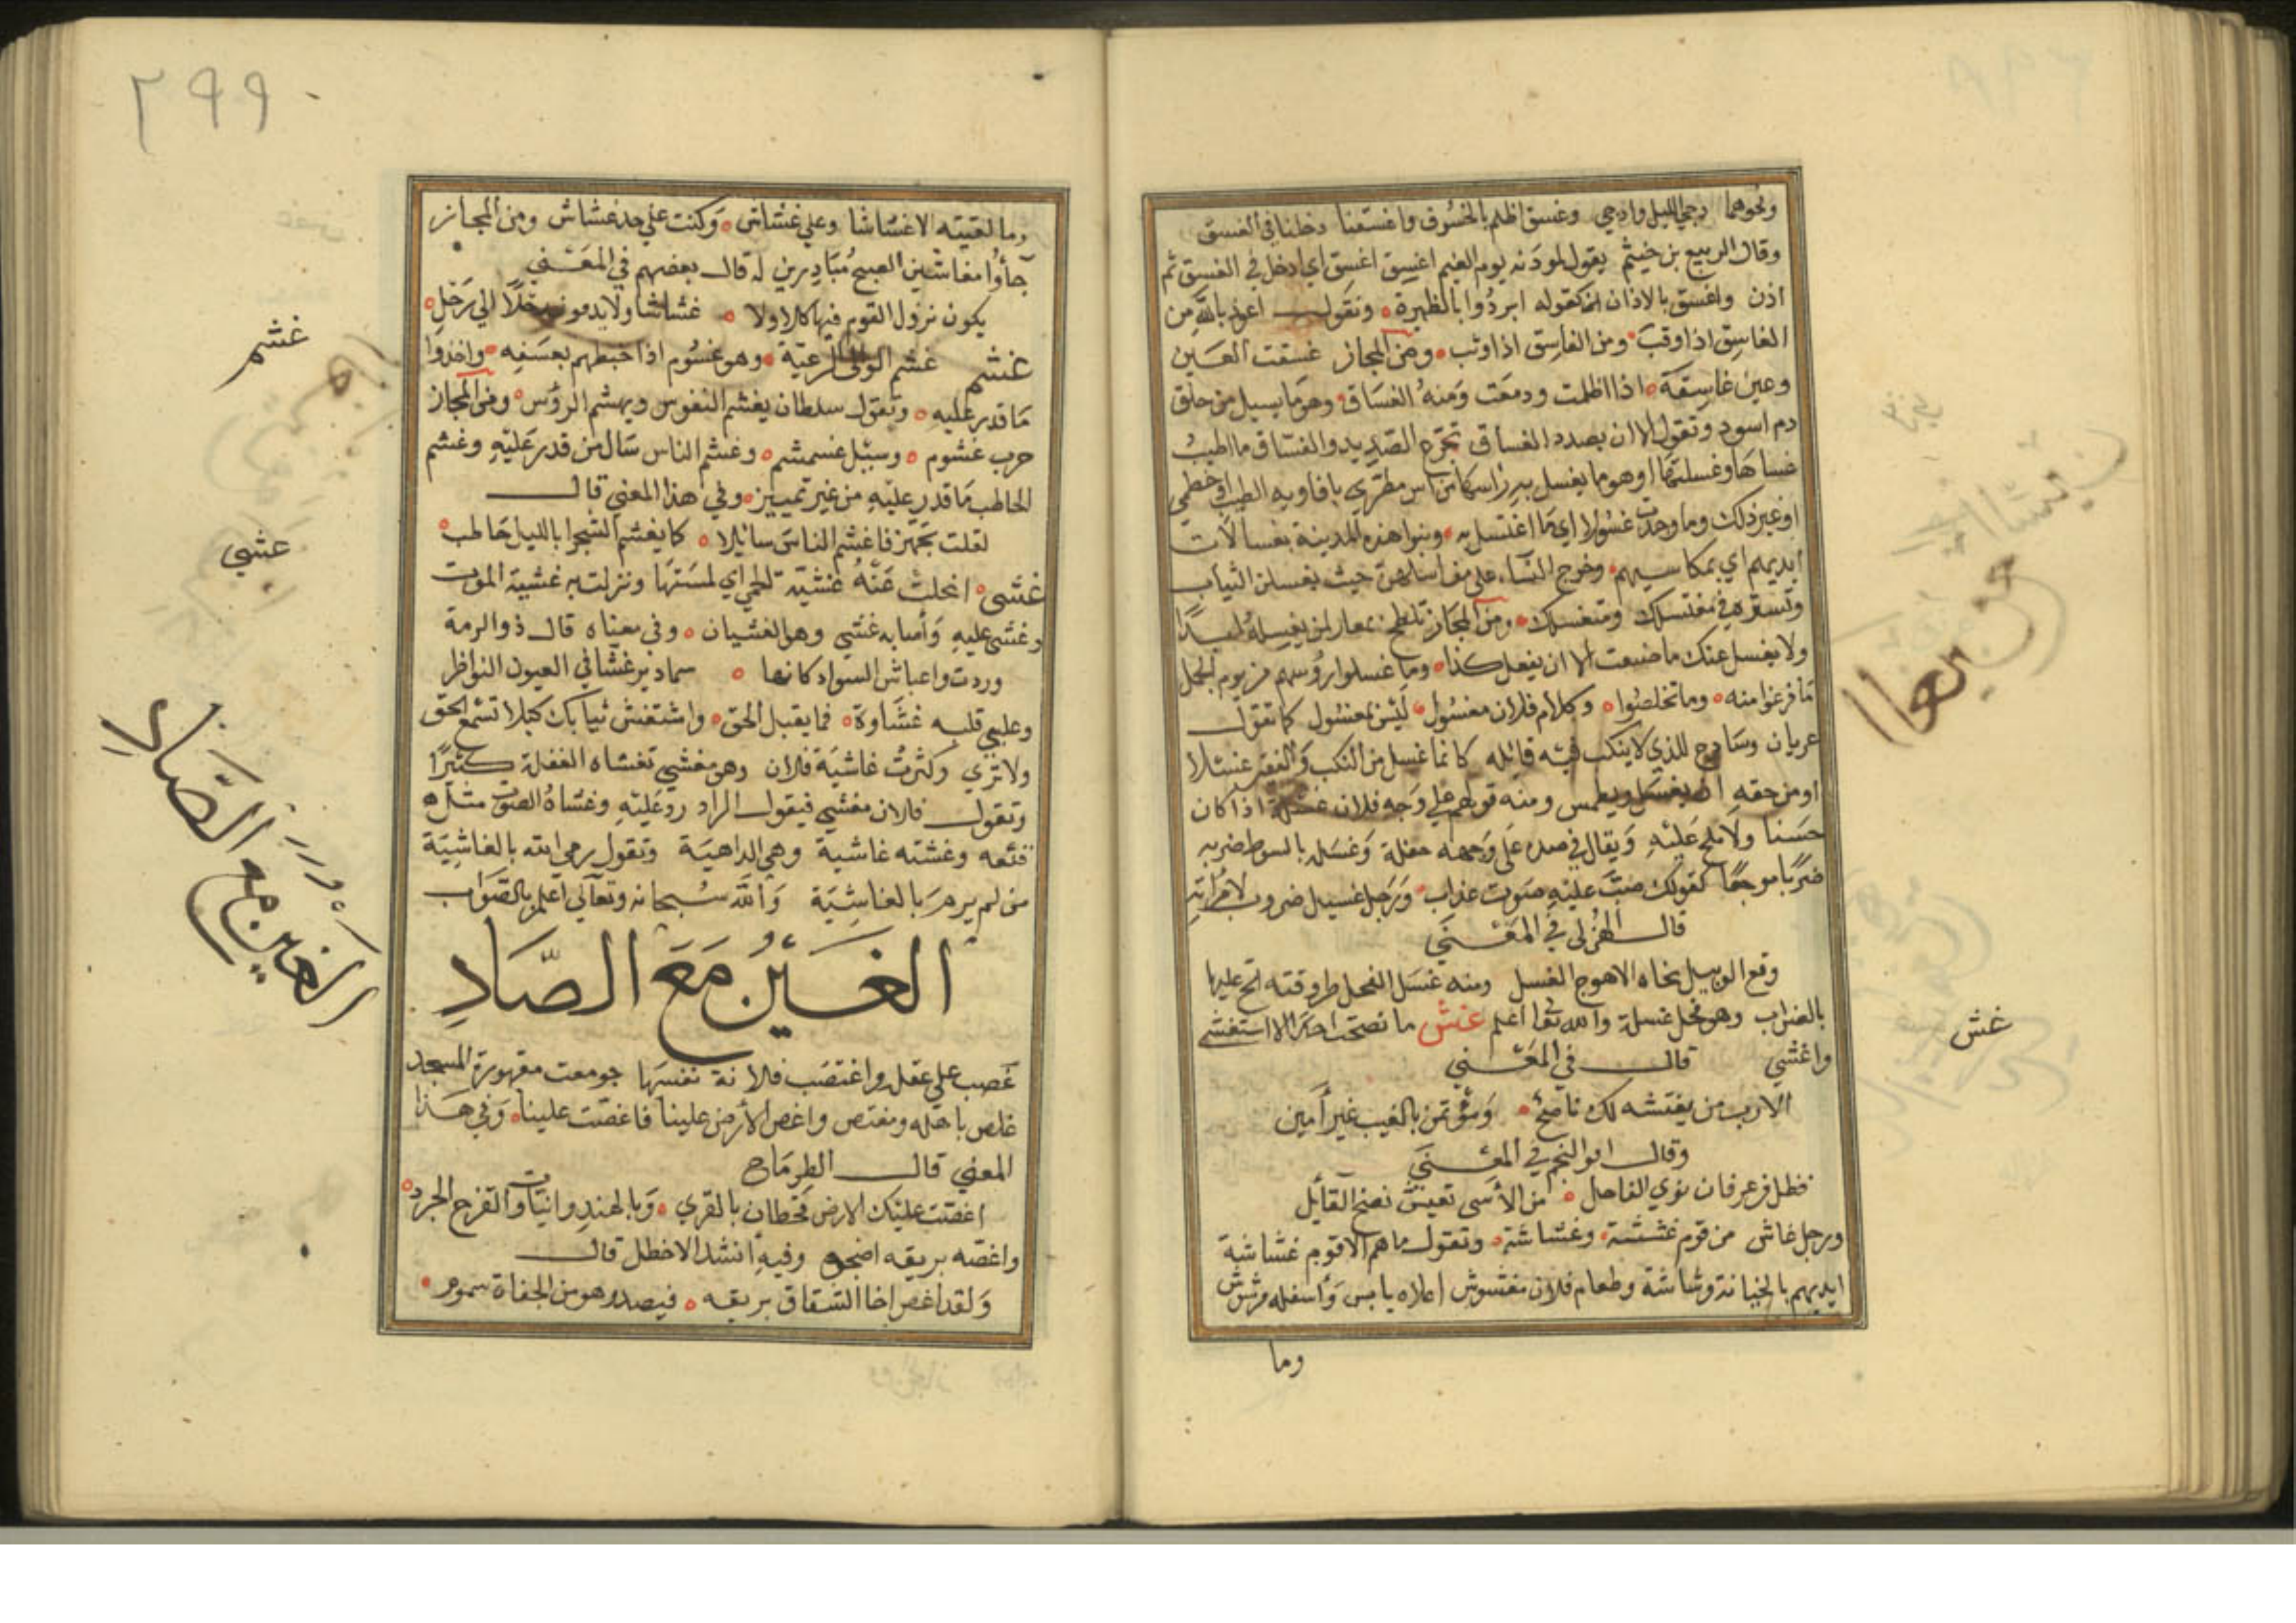 ونحوهما دجي الليل وادجي وغسق اظلم بالخسوف واغسقنا دخلنا في الغسق
وقال الربيع بن خيثم يقول لموذنه يوم الغيم اغسق اغسق اي ادخل في الغسق ثم
اذن واغسق بالاذان كقوله ابردوا بالظهيرة ونقول اعوذ بالله من
الغاسق اذا وقب ومن الفاسق اذا وثب ومن المجاز غسقت العين
وعين غاسقة اذا اظلمت ودمعت ومنه الغساق وهو ما يسيل من حلق
دم اسود وتقول الا ان بصدد الغساق تجرع الصديد والغساق ما اطيب
غسلها وغسلتها وهو ما يغسل به راسها من اس مطري بافاويه الطيب او خطمي
او غير ذلك وما وجدت غسولا اي ما اغتسل به وبنوا هذه المدينة بغسالات
ايديهم اي بمكاسبهم وخرج النساء علي مغاسلهن حيث يغسلن الثياب
وتستره في مغتسلك ومن المجاز تلطخ بعار لن يغسله ابدا
ولا يغسل عنك ما صنعت الا ان يفعل كذا وما غسلوا روسهم من يوم الجمل
ما فرغوا منه وما تخلصوا وكلام فلان مغسول ليس بمعسول كما تقول
عريان وساذج للذي لا ينكب فيه قائله كانما غسل من النكب والفقر غسلا
او من حقه ان يغسل ويطمس ومنه قولهم علي وجه فلان غسلة اذا كان
حسنا ولا ملح عليه ويقال في صده على وجهه حفلة وغسله بالسوط ضربه
ضربا موجعا كقولك صب عليه صوت عذاب ورجل غسيل ضروب لامراته
قال الهزلي في المعني
وقع الوبيل نحاه الاهوج الغسل ومنه غسل الفحل طروقته الح عليها
بالضراب وهو فحل غسلة والله تعالى اعلم غش ما نصحت احدا الا استغشي
واغشي قال في المعني
الا رب من يغتشه لك ناصح ومؤتمن بالغيب غير امين
وقال ابو النجم في المعني
فظل من عرفان نوي الماحل من الاسى تعيش نصح القائل
ورجل غاش من قوم غششة وغشاشة وتقول ما هم الا قوم غشاشة
ايديهم بالخيانة وشاشة وطعام فلان مغشوش اعلاه يابس واسفله مرشوش
وما
غش
٢٩٩
وما لقيته الا غشاشا وعلي غشاش وكنت علي حد غشاش ومن المجاز
جاؤا مغاشين الصبح مبادرين له قال بعضهم في المعني
يكون نزول القوم فيها كلا ولا غشاشا ولا يدمون رحلا الي رحل
غشم غشم الوالى الرعية وهو غشوم اذا خبطهم بعسفه واخذوا
ما قدر عليه وتقول سلطان يغشم النفوس ويهشم الرؤس ومن المجاز
حرب غشوم وسيل غشمشم وغشم الناس سال من قدر عليه وغشم
الحاطب ما قدر عليه من غير تمييز وفي هذا المعني قال
لقلت تجهز فاغشم الناس سائلا كما يغشم الشجرا بالليل حاطب
غشي انجلت عنه غشية الحمي اي لمستها ونزلت به غشية الموت
وغشي عليه وأصابه غشي وهو الغشيان وفي معناه قال ذو الرمة
وردت واغباش السواد كانها سمادير غشا في العيون النواظر
وعلي قلبه غشاوة فما يقبل الحق واستغش ثيابك كيلا تسمع الحق
ولا تري وكثرت غاشية فلان وهو مغشي تغشاه الغفلة كثيرا
وتقول فلان مغشي فيقول الراد رد عليه وغشاه الصوت مثله
قنعه وغشته غاشية وهي الداهية وتقول رمي الله بالغاشية
من لم يرم بالغاشية والله سبحانه وتعالي اعلم بالصواب
الغين مع الصاد
غصب علي عقله واغتصب فلانة نفسها جومعت مقهورة المسجد
غاص باهله ومغتص واغص الارض علينا فاغصت علينا وفي هذا
المعني قال الطرماح
اغصت عليك الارض قحطان بالقري وبالهندوانيات والقرح الجرد
واغصه بريقه اضجره وفيه انشد الاخطل قال
ولقد اغص اخا الشقاق بريقه فيصد وهو من الجفاة سموم
غشم
غشي
الغين مع الصاد